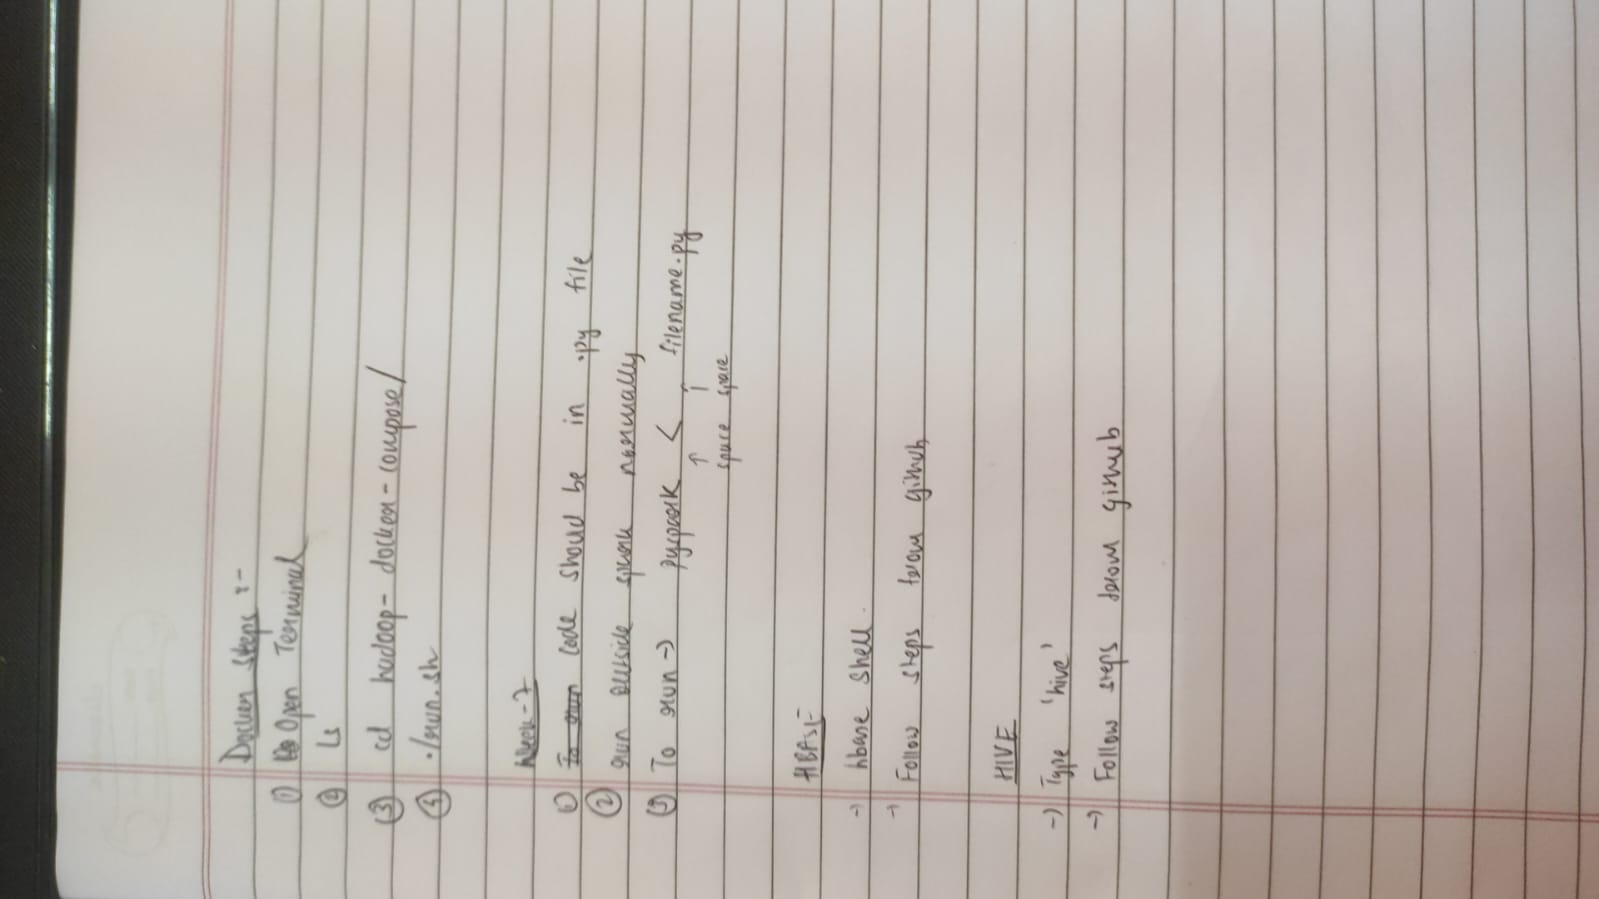 Docker Steps :-
① Open Terminal
② Ls
③ cd hadoop-docker-compose/
④ ./run.sh
Week-7
① To run Code should be in .py file
② run outside spark normally
③ To run → pyspark < filename.py
↑ ↑
space space
HBASE
→ hbase shell.
→ Follow steps from github
HIVE
→ Type 'hive'
→ Follow steps from github